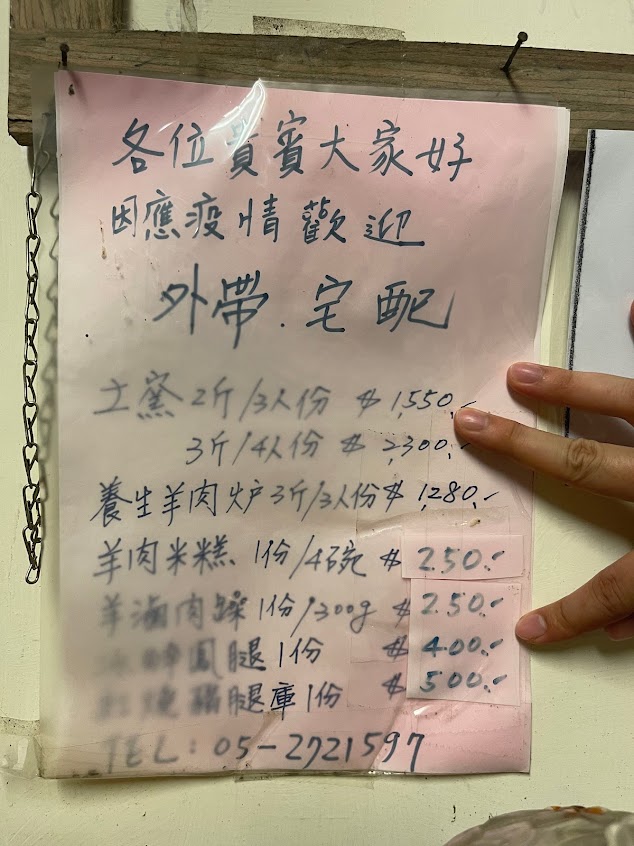 各位貴賓大家好
因應疫情歡迎
外帶.宅配
土窯2斤/3人份 $1,550.-
3斤/4人份 $2,300.-
養生羊肉炉3斤/3人份$1,280.-
羊肉米糕 1份/4碗 $250.-
羊滷肉躁1份/300g $250.-
鳳腿1份 $400.-
燒豬腿庫1份 $500.-
TEL:05-2721597